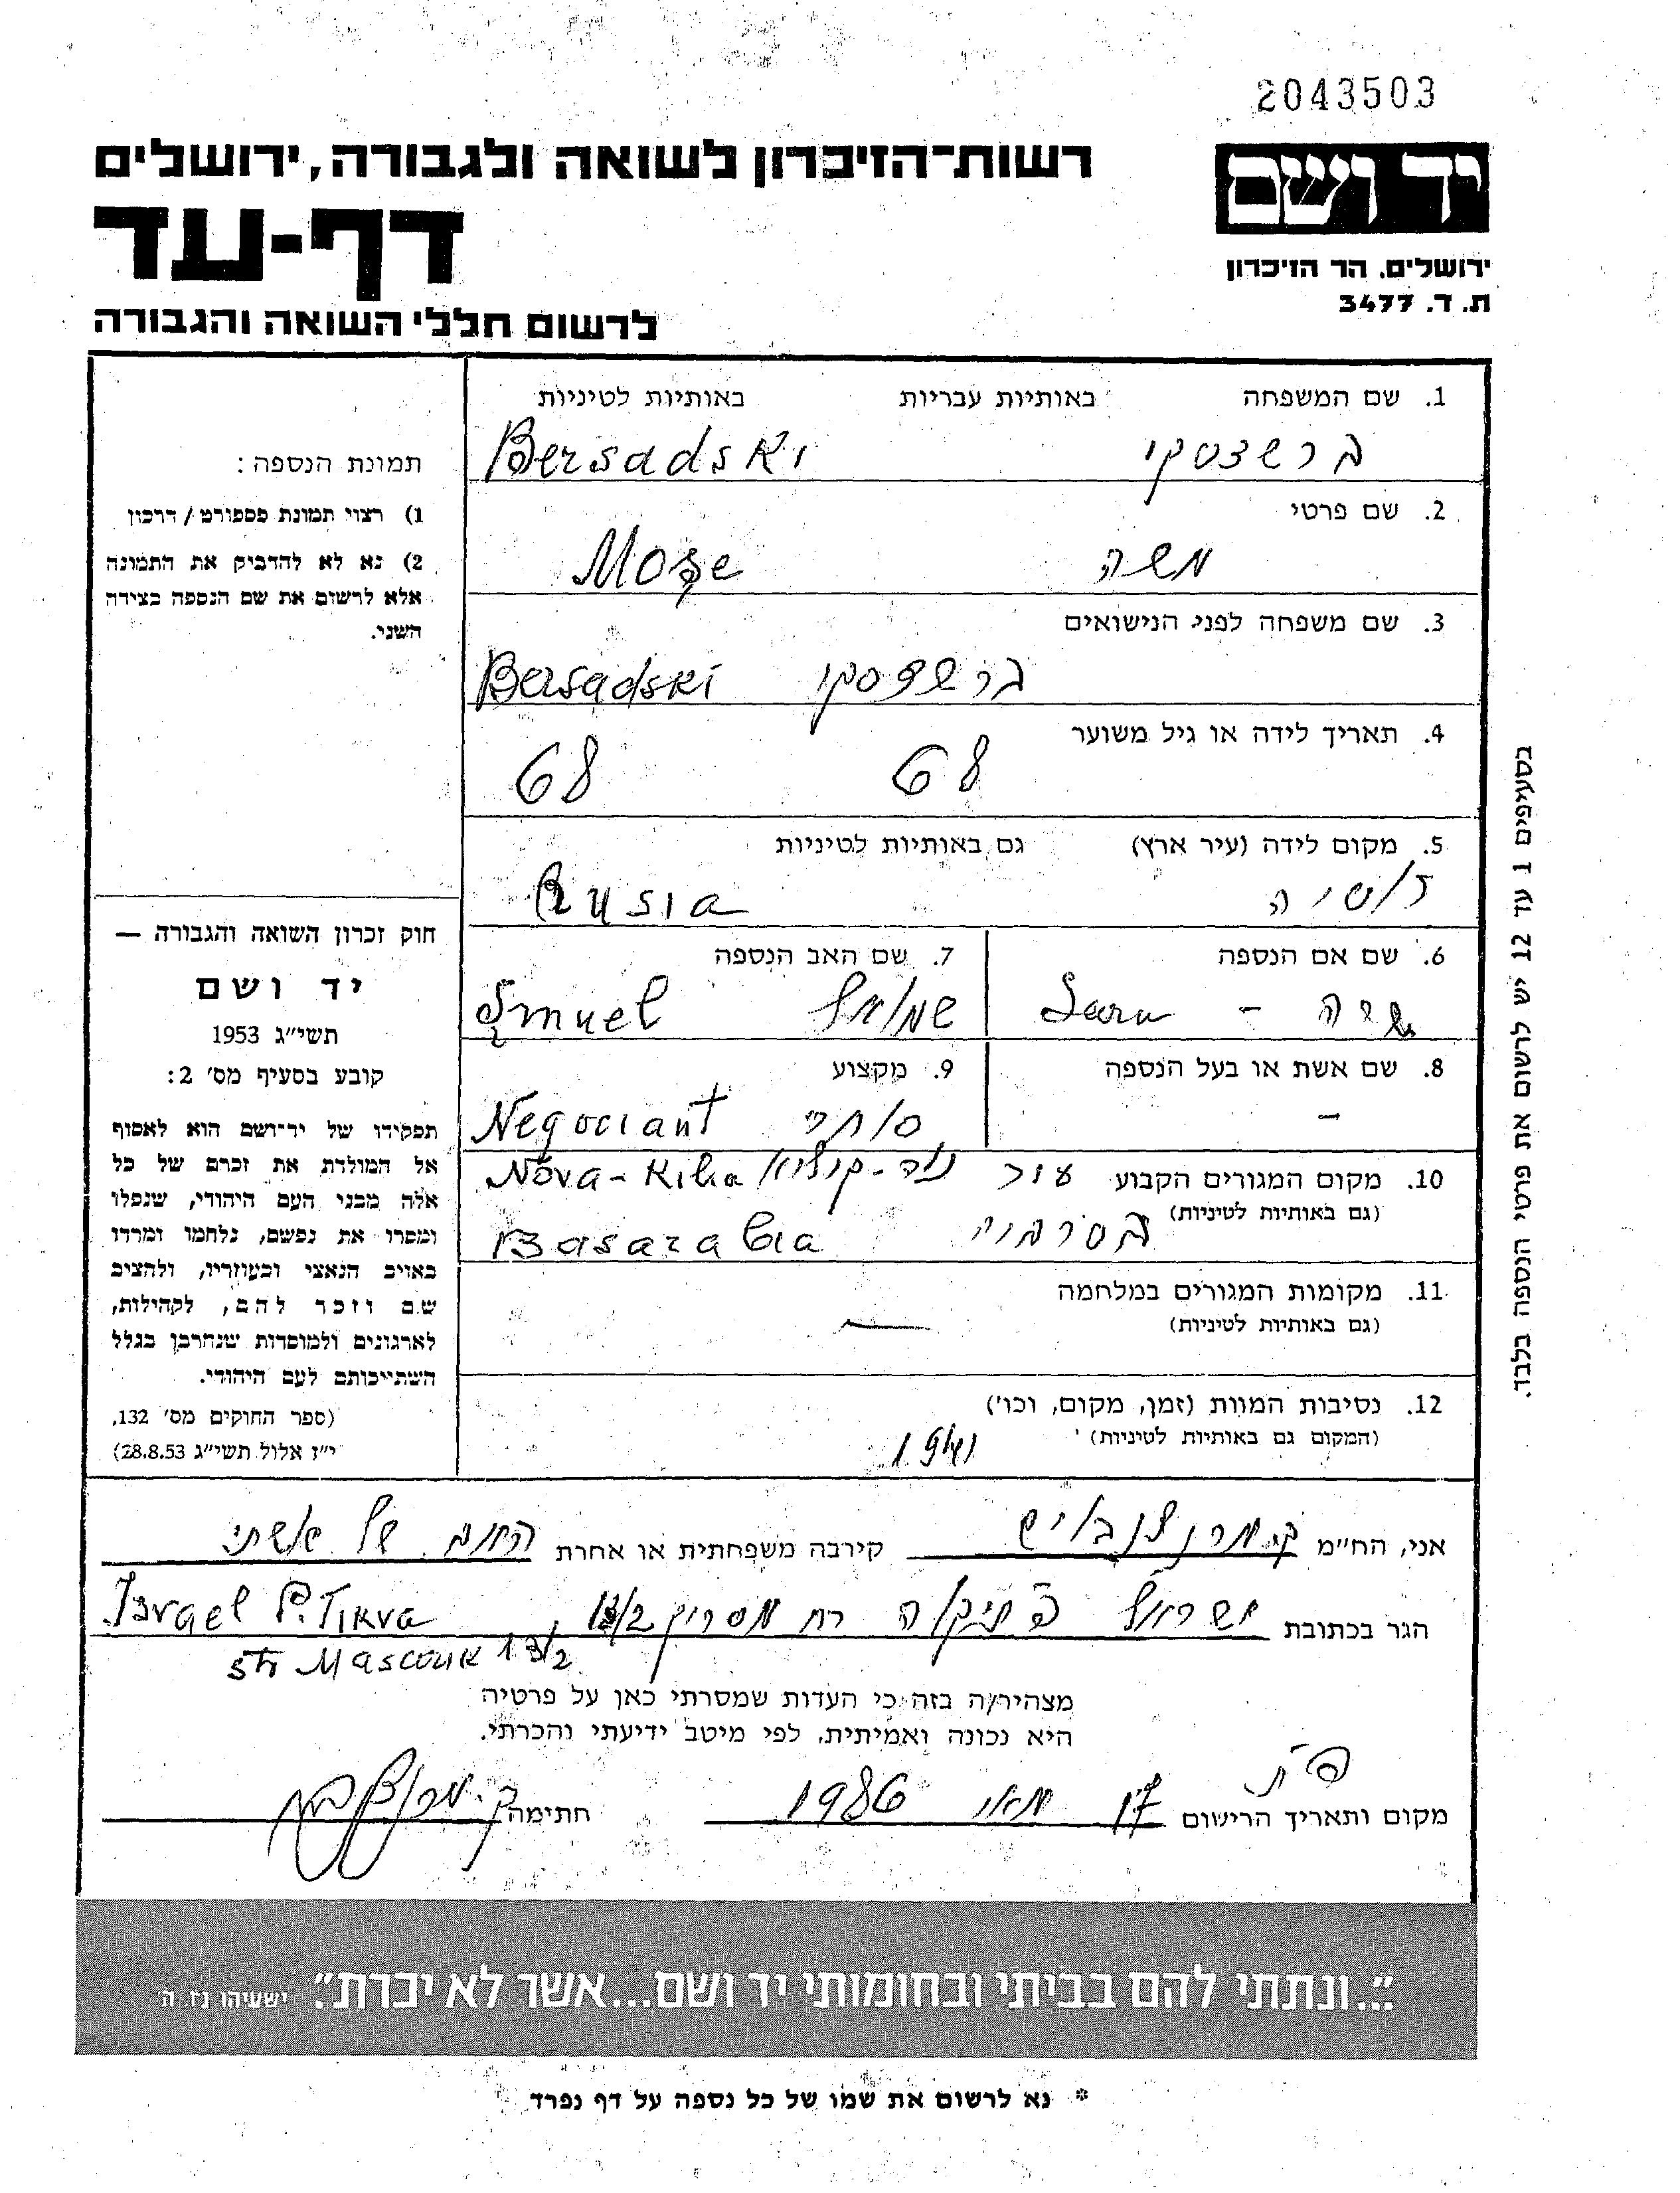 2043503
יד ושם
ירושלים. הר הזיכרון
ת. ד. 3477
רשות־הזיכרון לשואה ולגבורה, ירושלים
דף-עד
לרשום חללי השואה והגבורה
1. שם המשפחה באותיות עבריות באותיות לטיניות
ברשדסקי Bersadski
2. שם פרטי
משה Moșe
3. שם משפחה לפני הנישואים
ברשדסקי Bersadski
4. תאריך לידה או גיל משוער
68 68
5. מקום לידה (עיר ארץ) גם באותיות לטיניות
רוסיה Rusia
6. שם אם הנספה
שרה - Sara
7. שם האב הנספה
שמואל Șmuel
8. שם אשת או בעל הנספה
-
9. מקצוע
סוחר Negociant
10. מקום המגורים הקבוע Nova-Kilia
(גם באותיות לטיניות)
בסרביה Basarabia
11. מקומות המגורים במלחמה
(גם באותיות לטיניות)
—
12. נסיבות המוות (זמן, מקום, וכו')
(המקום גם באותיות לטיניות)
1941
תמונת הנספה:
1) רצוי תמונת פספורט / דרכון
2) נא לא להדביק את התמונה
אלא לרשום את שם הנספה בצידה
השני.
חוק זכרון השואה והגבורה —
יד ושם
תשי״ג 1953
קובע בסעיף מס׳ 2:
תפקידו של יד־ושם הוא לאסוף
אל המולדת את זכרם של כל
אלה מבני העם היהודי, שנפלו
ומסרו את נפשם, נלחמו ומרדו
באויב הנאצי ובעוזריו, ולהציב
שם וזכר להם, לקהילות,
לארגונים ולמוסדות שנחרבו בגלל
השתייכותם לעם היהודי.
(ספר החוקים מס׳ 132,
י״ז אלול תשי״ג 28.8.53)
בסעיפים 1 עד 12 יש לרשום את פרטי הנספה בלבד.
אני, הח״מ קירבה משפחתית או אחרת של אשתי
הגר בכתובת ישראל רח 13/2 Israel P. Tikva
str 13/2
מצהיר/ה בזה כי העדות שמסרתי כאן על פרטיה
היא נכונה ואמיתית, לפי מיטב ידיעתי והכרתי.
פ״ת
מקום ותאריך הרישום 17 מאי 1986 חתימה
״...ונתתי להם בביתי ובחומותי יד ושם...אשר לא יכרת״. ישעיהו נו. ה
* נא לרשום את שמו של כל נספה על דף נפרד